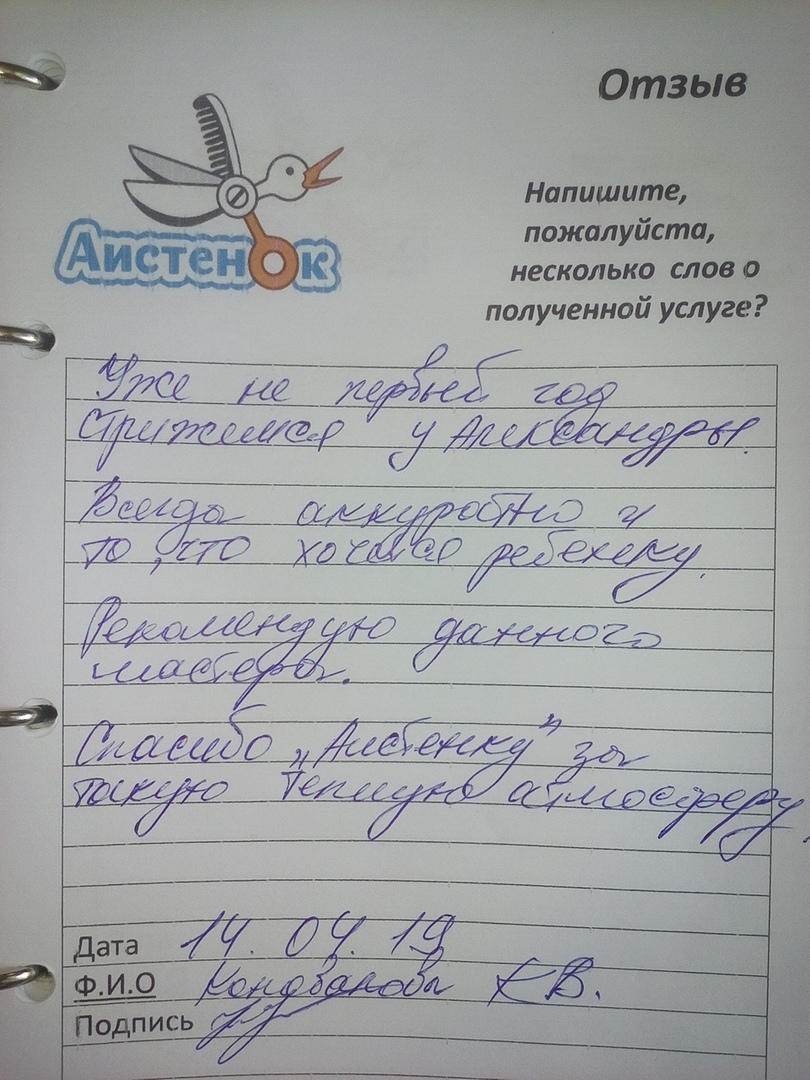 Отзыв
Аистенок
Напишите,
пожалуйста,
несколько слов о
полученной услуге?
Уже не первый год
стрижемся у Александры.
Всегда аккуратно и
то, что хочется ребенку.
Рекомендую данного
мастера.
Спасибо „Аистенку” за
такую теплую атмосферу.
Дата 14.04.19
Ф.И.О К.В.
Подпись